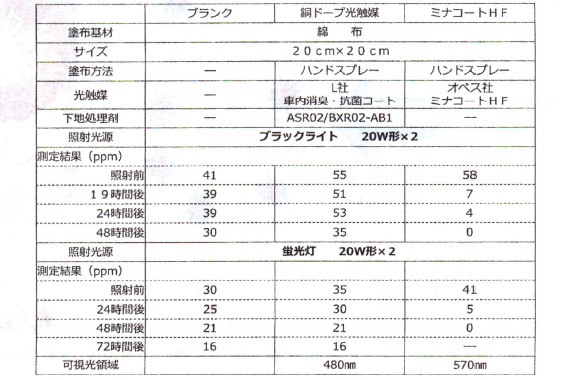 ブランク 銅ドープ光触媒 ミナコートＨＦ
塗布基材 綿　布
サイズ ２０ｃｍ×２０ｃｍ
塗布方法 ― ハンドスプレー ハンドスプレー
光触媒 ― L社 車内消臭・抗菌コート オペス社 ミナコートＨＦ
下地処理剤 ― ASR02/BXR02-AB1 ―
照射光源 ブラックライト　20W形×２
測定結果（ppm）
照射前 41 55 58
１９時間後 39 51 7
24時間後 39 53 4
48時間後 30 35 0
照射光源 蛍光灯　20W形×２
測定結果（ppm）
照射前 30 35 41
24時間後 25 30 5
48時間後 21 21 0
72時間後 16 16 ―
可視光領域 480㎚ 570㎚